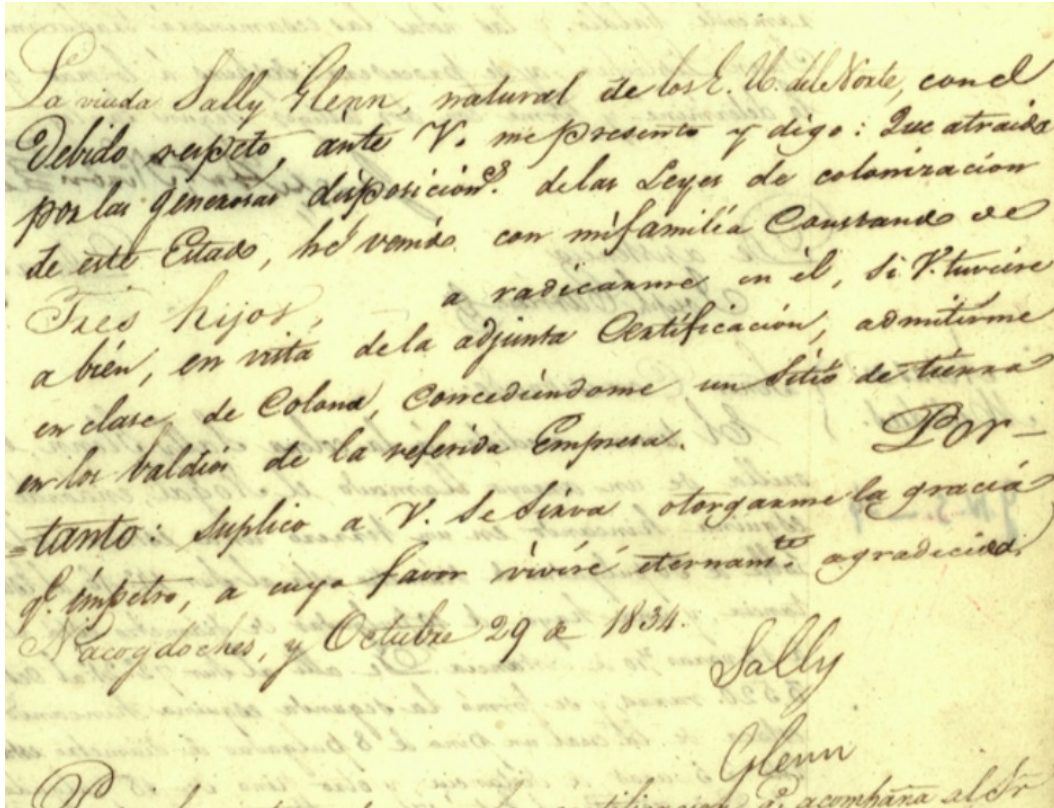 La viuda Sally Glenn, natural de los E. U. del Norte, con el
Debido respeto, ánte V. me presento y digo: Que atraida
por las generosas disposicion.s de las Leyes de colonizacion
de este Estado, hé venido con mi familia Constando de
Tres hijos, a radicarme en él, si V. tuviere
a bién, en vista de la adjunta Certificación, admitirme
en clase de Colona, Concediéndome un Sitio de tierra
en los baldios de la referida Empresa. Por-
=tanto: suplico a V. se sirva otorgarme la gracia
q.e impetro, a cuyo favor viviré eternam.te agradecida.
Nacogdoches, y Octubre 29 de 1834.
Sally
Glenn
acompaña al Sr